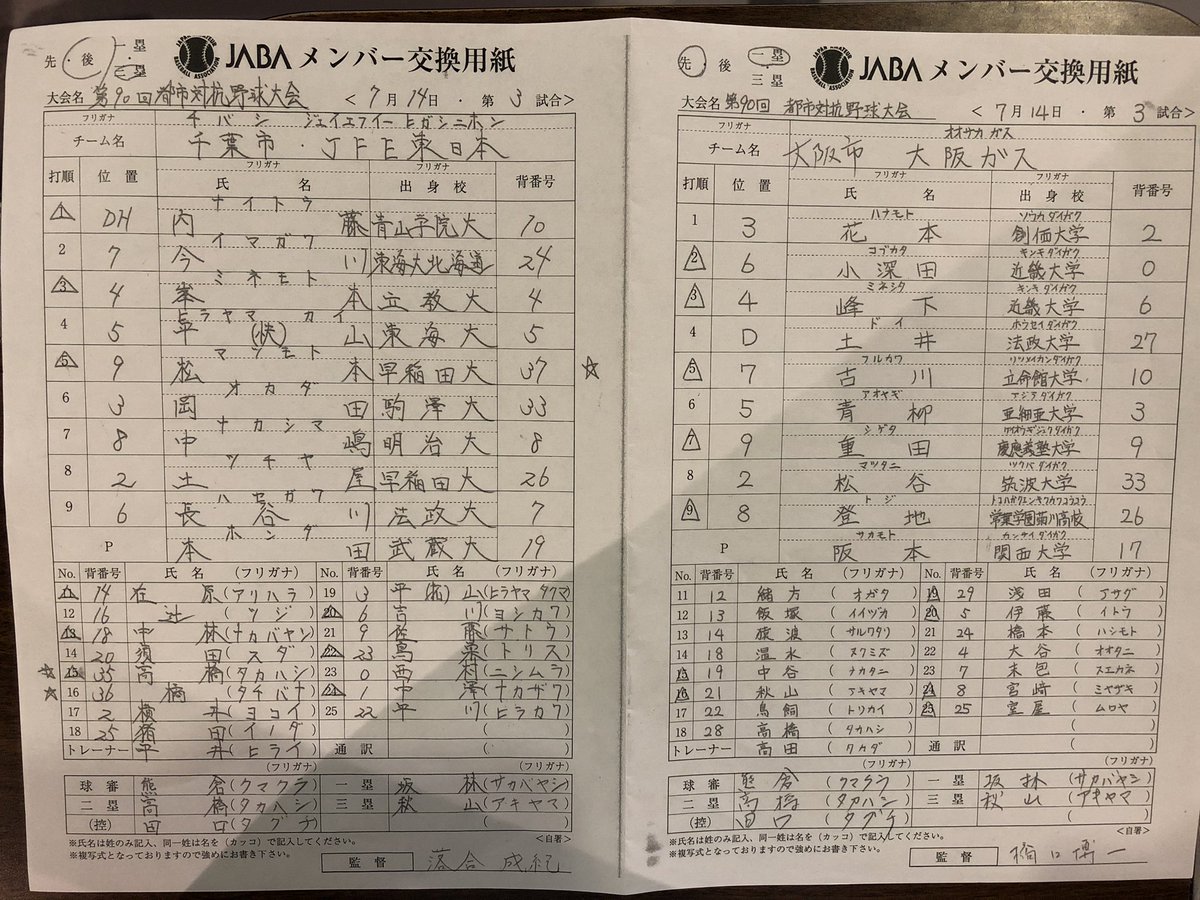 先・後 一塁 三塁 JABA メンバー交換用紙
大会名 第90回都市対抗野球大会 <7月14日・第3試合>
フリガナ チバシ ジェイエフイーヒガシニホン
チーム名 千葉市・JFE東日本
打順 位置 フリガナ 氏名 フリガナ 出身校 背番号
ナイトウ
1 DH 内藤 青山学院大 10
イマガワ
2 7 今川 東海大北海道 24
ミネモト
3 4 峯本 立教大 4
ヒラヤマ カイ
4 5 平(快)山 東海大 5
マツモト
5 9 松本 早稲田大 37 ☆
オカダ
6 3 岡田 駒澤大 33
ナカシマ
7 8 中嶋 明治大 8
ツチヤ
8 2 土屋 早稲田大 26
ハセガワ
9 6 長谷川 法政大 7
ホンダ
P 本田 武蔵大 19
No. 背番号 氏名 (フリガナ) No. 背番号 氏名 (フリガナ)
11 14 在原(アリハラ) 19 3 平(拓)山(ヒラヤマタクマ)
12 16 辻(ツジ) 20 6 吉川(ヨシカワ)
13 18 中林(ナカバヤシ) 21 9 佐藤(サトウ)
14 20 須田(スダ) 22 23 鳥巣(トリス)
☆ 15 35 高橋(タカハシ) 23 0 西村(ニシムラ)
☆ 16 36 橘(タチバナ) 24 1 中澤(ナカザワ)
17 2 横井(ヨコイ) 25 22 平川(ヒラカワ)
18 25 猪田(イノダ) ( )
トレーナー 平井(ヒライ) 通訳 ( )
(フリガナ) (フリガナ)
球審 熊倉(クマクラ) 一塁 坂林(サカバヤシ)
二塁 高橋(タカハシ) 三塁 秋山(アキヤマ)
(控) 田口(タグチ) ( )
※氏名は姓のみ記入、同一姓は名を(カッコ)で記入してください。
※複写式となっておりますので強めにお書き下さい。 <自署>
監督 落合成紀
先・後 一塁 三塁 JABA メンバー交換用紙
大会名 第90回 都市対抗野球大会 <7月14日・第3試合>
フリガナ オオサカガス
チーム名 大阪市 大阪ガス
打順 位置 フリガナ 氏名 フリガナ 出身校 背番号
ハナモト ソウカダイガク
1 3 花本 創価大学 2
コブカタ キンキダイガク
2 6 小深田 近畿大学 0
ミネシタ キンキダイガク
3 4 峰下 近畿大学 6
ドイ ホウセイダイガク
4 D 土井 法政大学 27
フルカワ リツメイカンダイガク
5 7 古川 立命館大学 10
アオヤギ アジアダイガク
6 5 青柳 亜細亜大学 3
シゲタ ケイオウギジュクダイガク
7 9 重田 慶應義塾大学 9
マツタニ ツクバダイガク
8 2 松谷 筑波大学 33
トジ トコハガクエンキクガワコウコウ
9 8 登地 常葉学園菊川高校 26
サカモト カンサイダイガク
P 阪本 関西大学 17
No. 背番号 氏名 (フリガナ) No. 背番号 氏名 (フリガナ)
11 12 緒方(オガタ) 19 29 浅田(アサダ)
12 13 飯塚(イイヅカ) 20 5 伊藤(イトウ)
13 14 猿渡(サルワタリ) 21 24 橋本(ハシモト)
14 18 温水(ヌクミズ) 22 4 大谷(オオタニ)
15 19 中谷(ナカタニ) 23 7 末包(スエカネ)
16 21 秋山(アキヤマ) 24 8 宮崎(ミヤザキ)
17 22 鳥飼(トリカイ) 25 25 室屋(ムロヤ)
18 28 高橋(タカハシ) ( )
トレーナー 高田(タカダ) 通訳 ( )
(フリガナ) (フリガナ)
球審 熊倉(クマクラ) 一塁 坂林(サカバヤシ)
二塁 高橋(タカハシ) 三塁 秋山(アキヤマ)
(控) 田口(タグチ) ( )
※氏名は姓のみ記入、同一姓は名を(カッコ)で記入してください。
※複写式となっておりますので強めにお書き下さい。 <自署>
監督 橋口博一